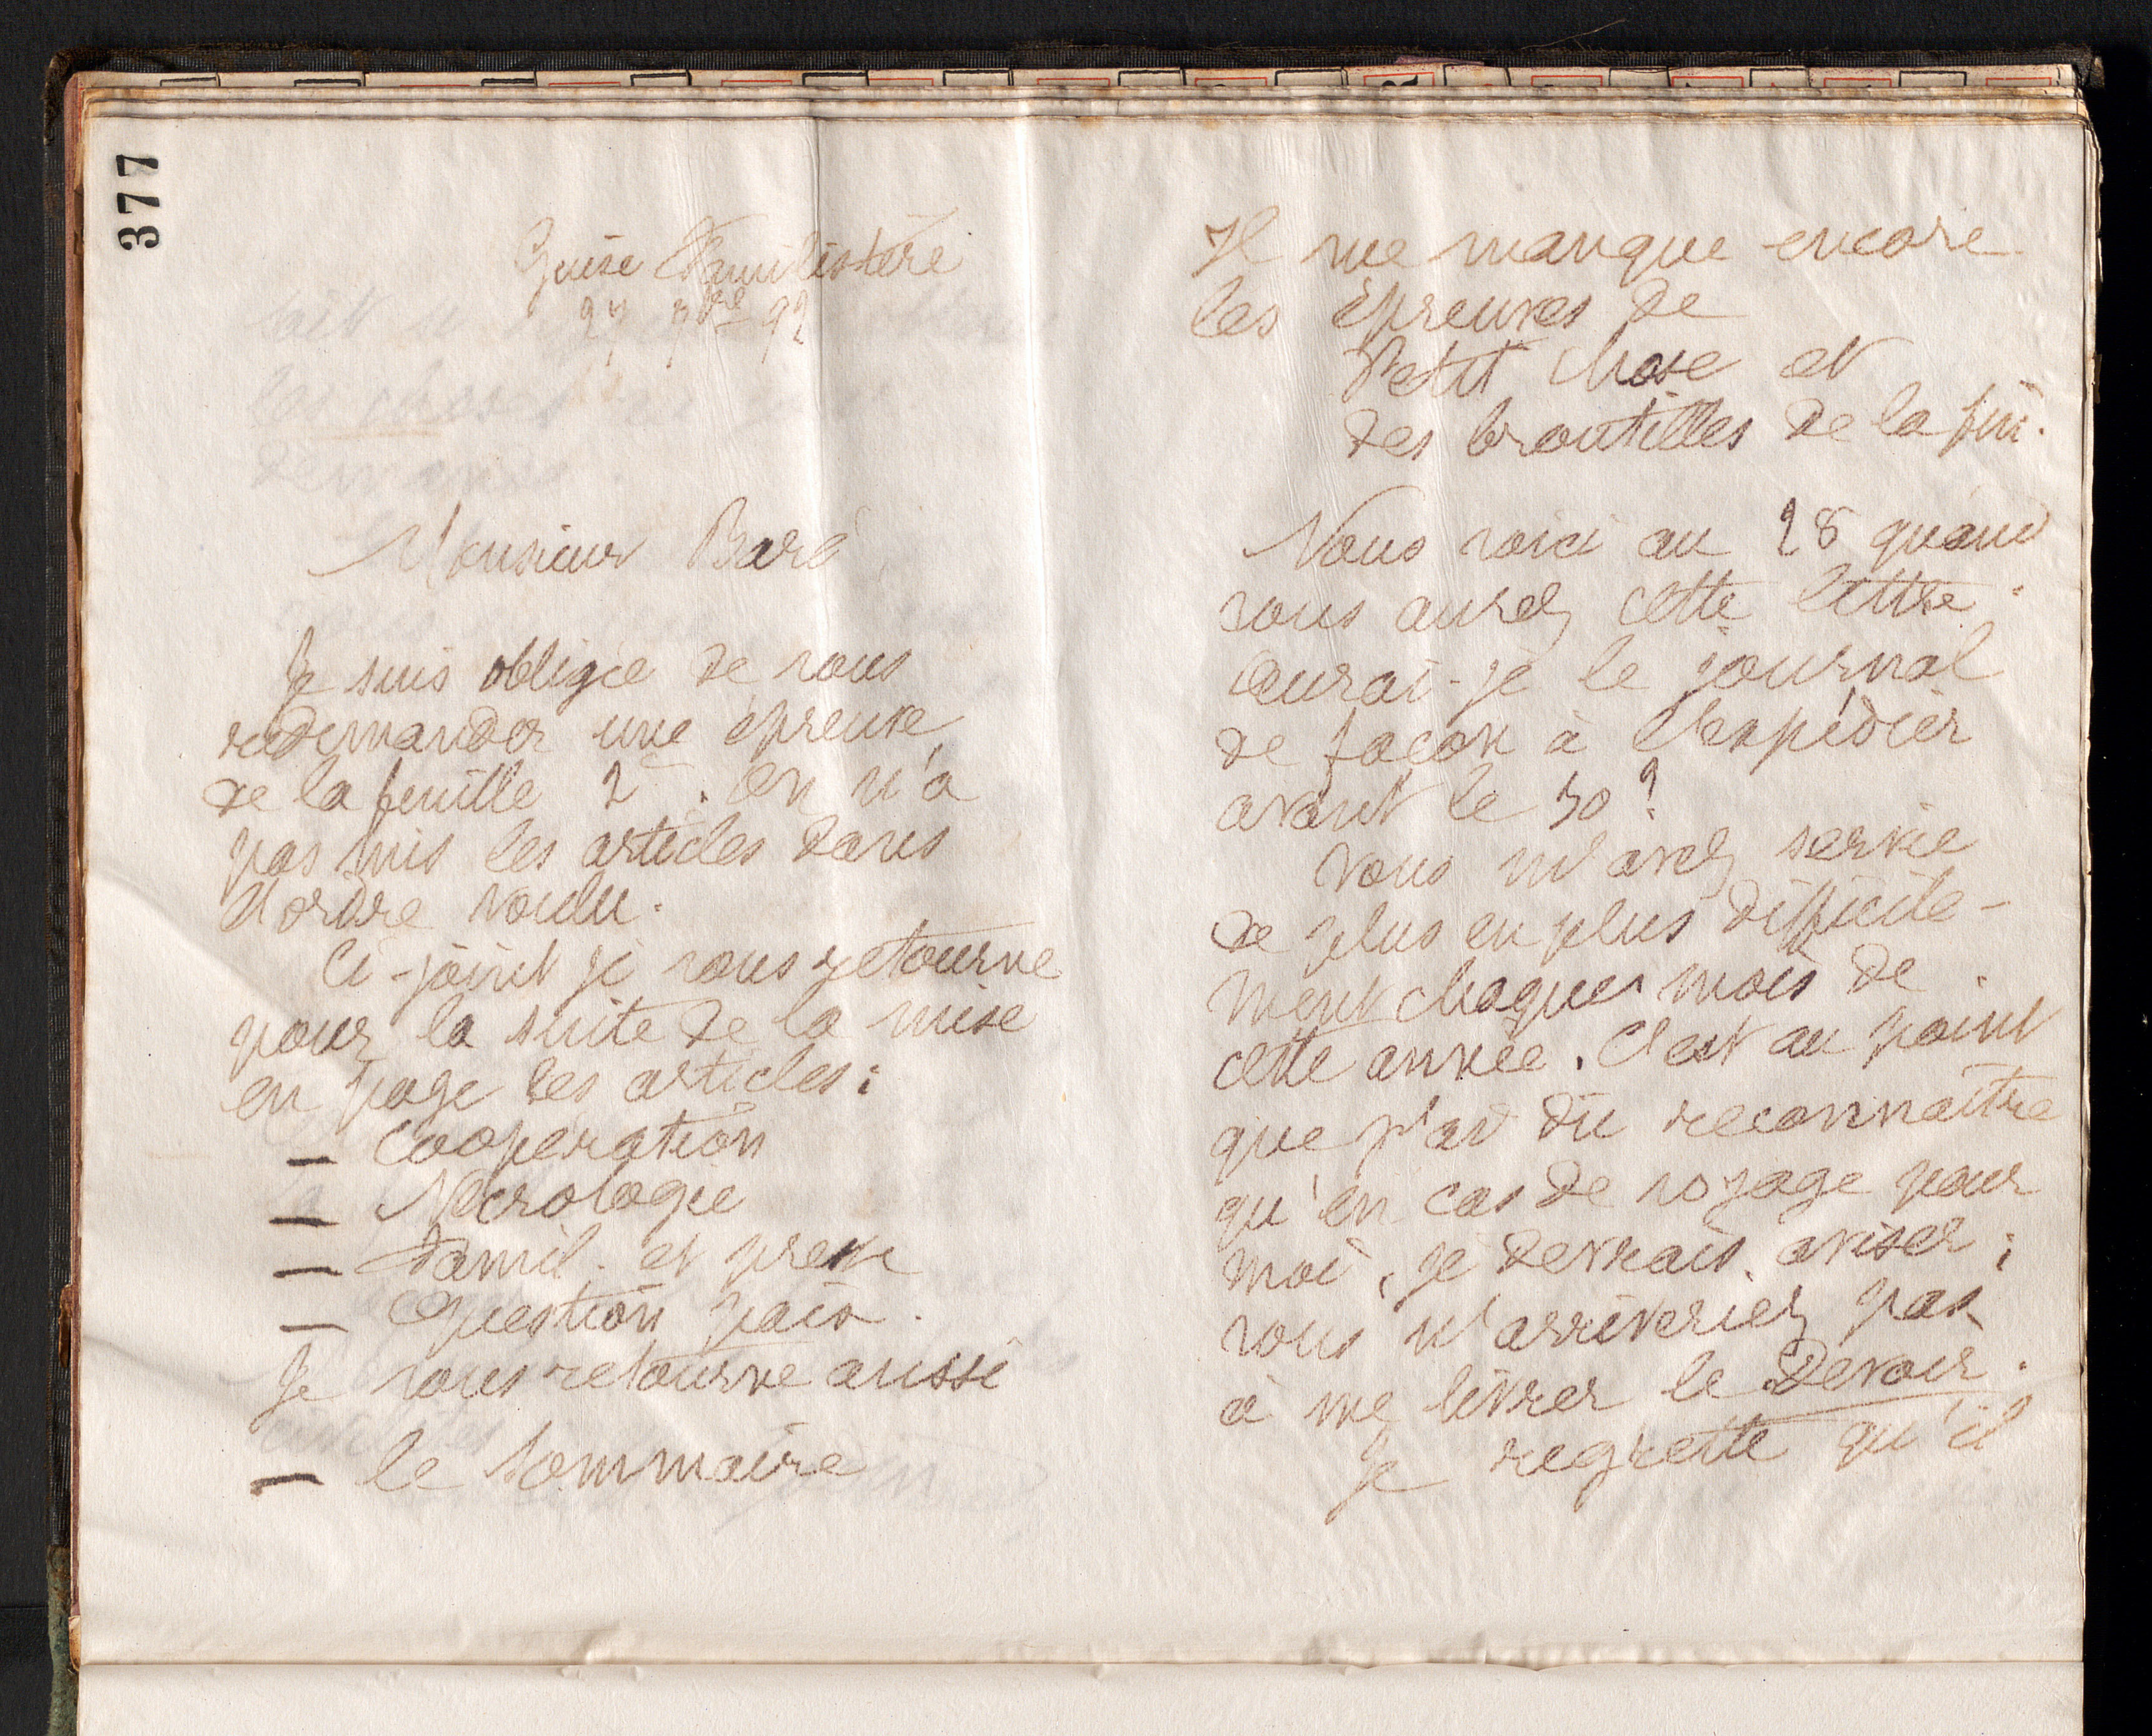 377
Guise Familistère
27 7bre 92
Monsieur Baré
Je suis obligée de vous
redemander une épreuve
de la feuille 2e. On n'a
pas mis les articles dans
l'ordre voulu.
Ci-joint je vous retourne
pour la suite de la mise
en page les articles :
— Coopération
— Nécrologie
— Famil. et prév
— Question paix.
Je vous retourne aussi
— le sommaire
Il me manque encore
les épreuves de
Petit Chose et
des broutilles de la fin.
Nous voici au 28 quand
vous aurez cette lettre.
Aurai-je le journal
de façon à l'expédier
avant le 30 ?
Vous m'avez servie
de plus en plus difficile-
ment chaque mois de
cette année. C'est au point
que j'ai dû reconnaître
qu'en cas de voyage pour
moi, je devrais aviser ;
vous n'arriveriez pas
à me livrer le Devoir.
Je regrette qu'il